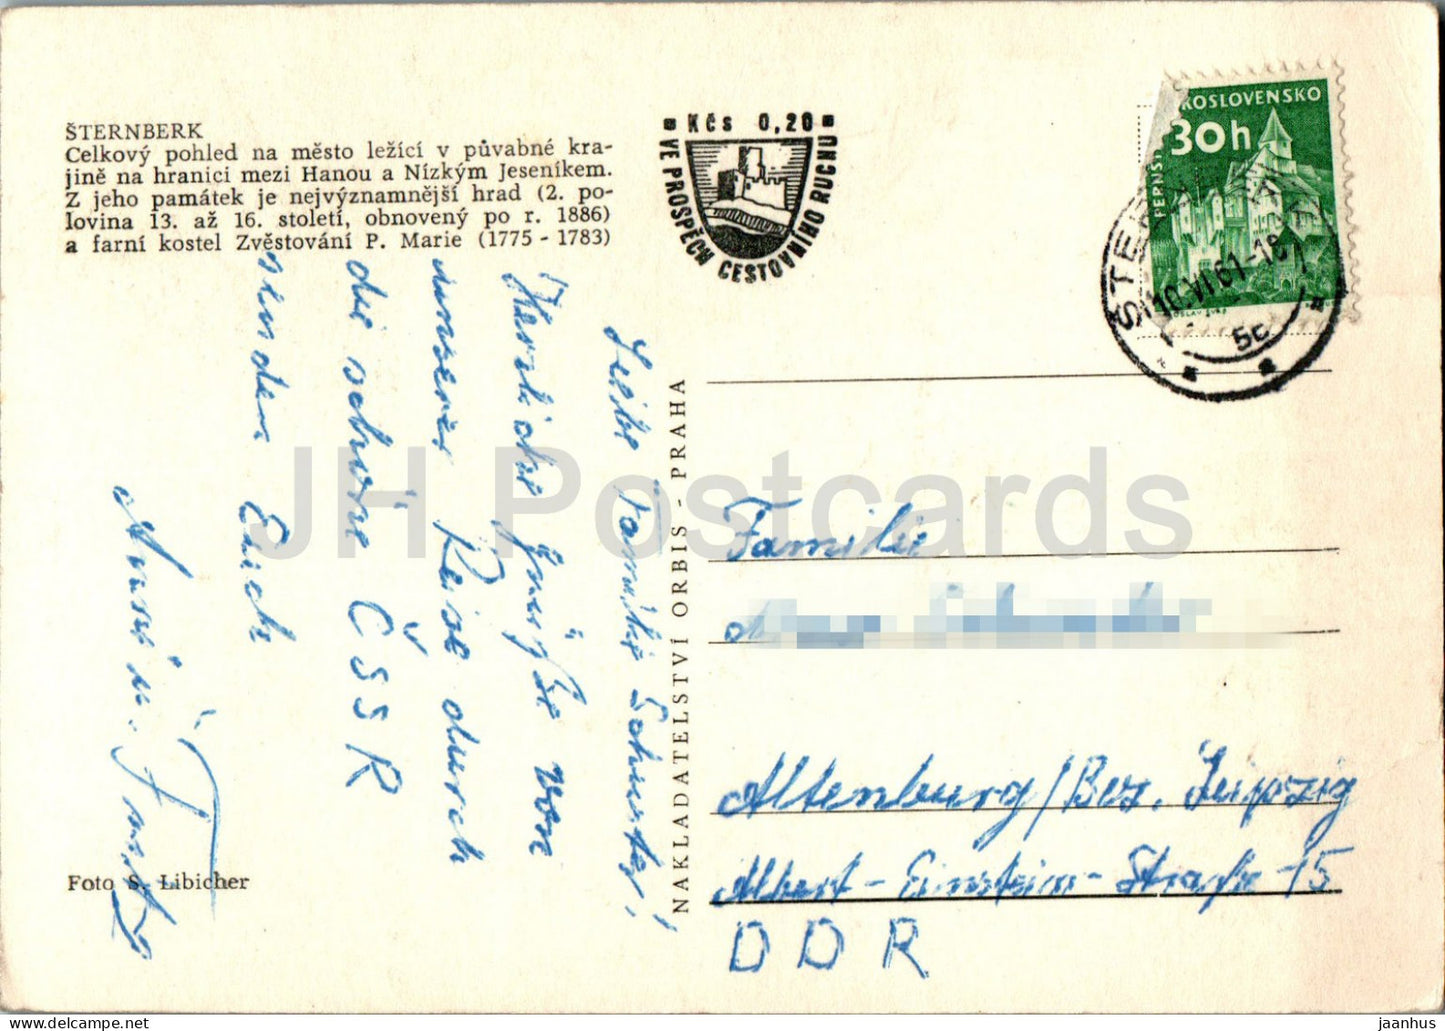 ŠTERNBERK
Celkový pohled na město ležící v půvabné kra-
jině na hranici mezi Hanou a Nízkým Jeseníkem.
Z jeho památek je nejvýznamnější hrad (2. po-
lovina 13. až 16. století, obnovený po r. 1886)
a farní kostel Zvěstování P. Marie (1775 - 1783)
Kčs 0,20
VE PROSPĚCH CESTOVNÍHO RUCHU
KOSLOVENSKO
30h
PERNŠT
10.VI.61-18
5c
Liebe Familie Schuster!
Herzliche Grüße von
unserer Reise durch
die schöne ČSSR
senden Euch
Anni u. Fritz
NAKLADATELSTVÍ ORBIS - PRAHA
Familie
Altenburg/Bez. Leipzig
Albert-Einstein-Straße 15
DDR
Foto S. Libicher
JH Postcards
hippostcard.com/store/jaanhus
jaanhus.com